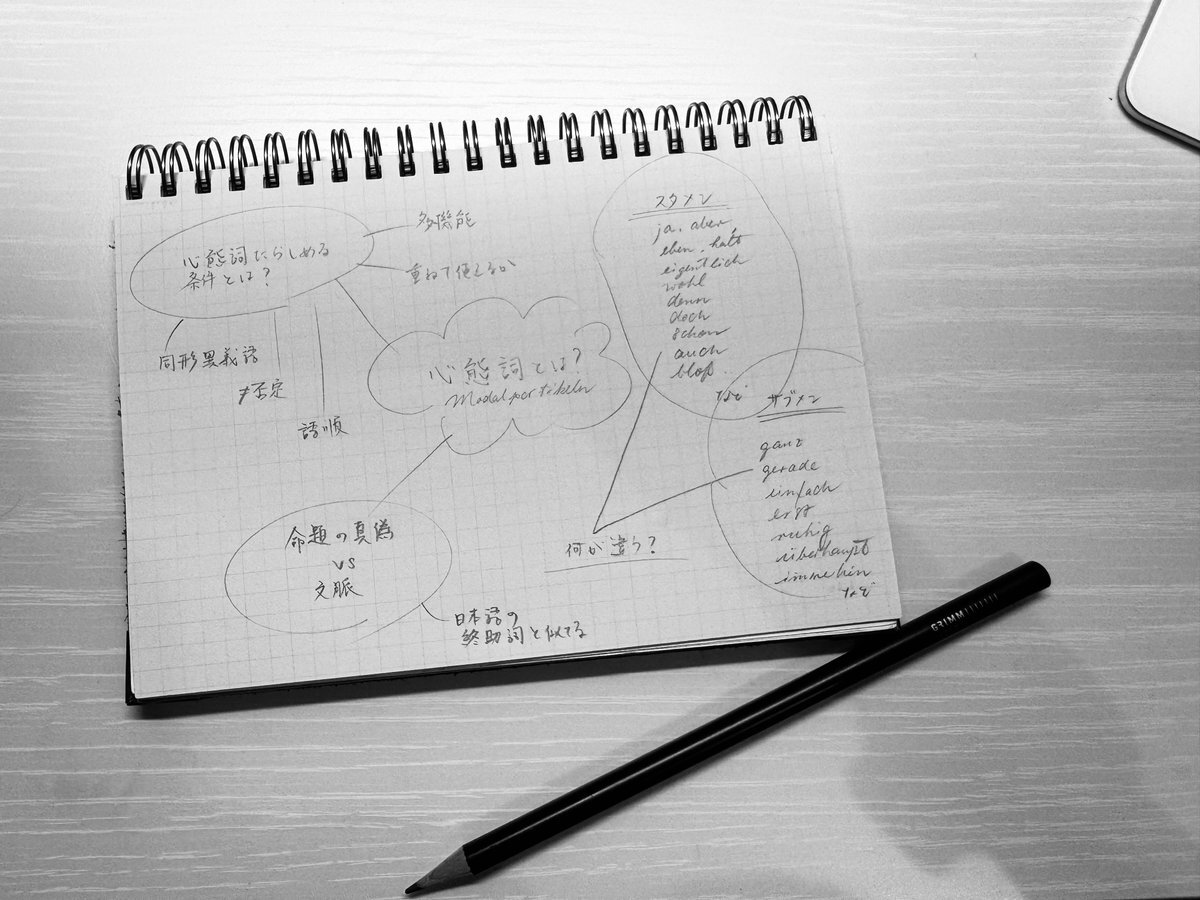 心態詞たらしめる
条件とは?
多機能
重ねて使えるか
同形異義語
≠否定
語順
心態詞とは?
Modalpartikeln
命題の真偽
vs
文脈
日本語の
終助詞と似てる
スタメン
ja, aber,
eben, halt
eigentlich
wohl
denn
doch
schon
auch
bloß
など
サブメン
ganz
gerade
einfach
erst
ruhig
überhaupt
immehin
など
何が違う?
GRIMM